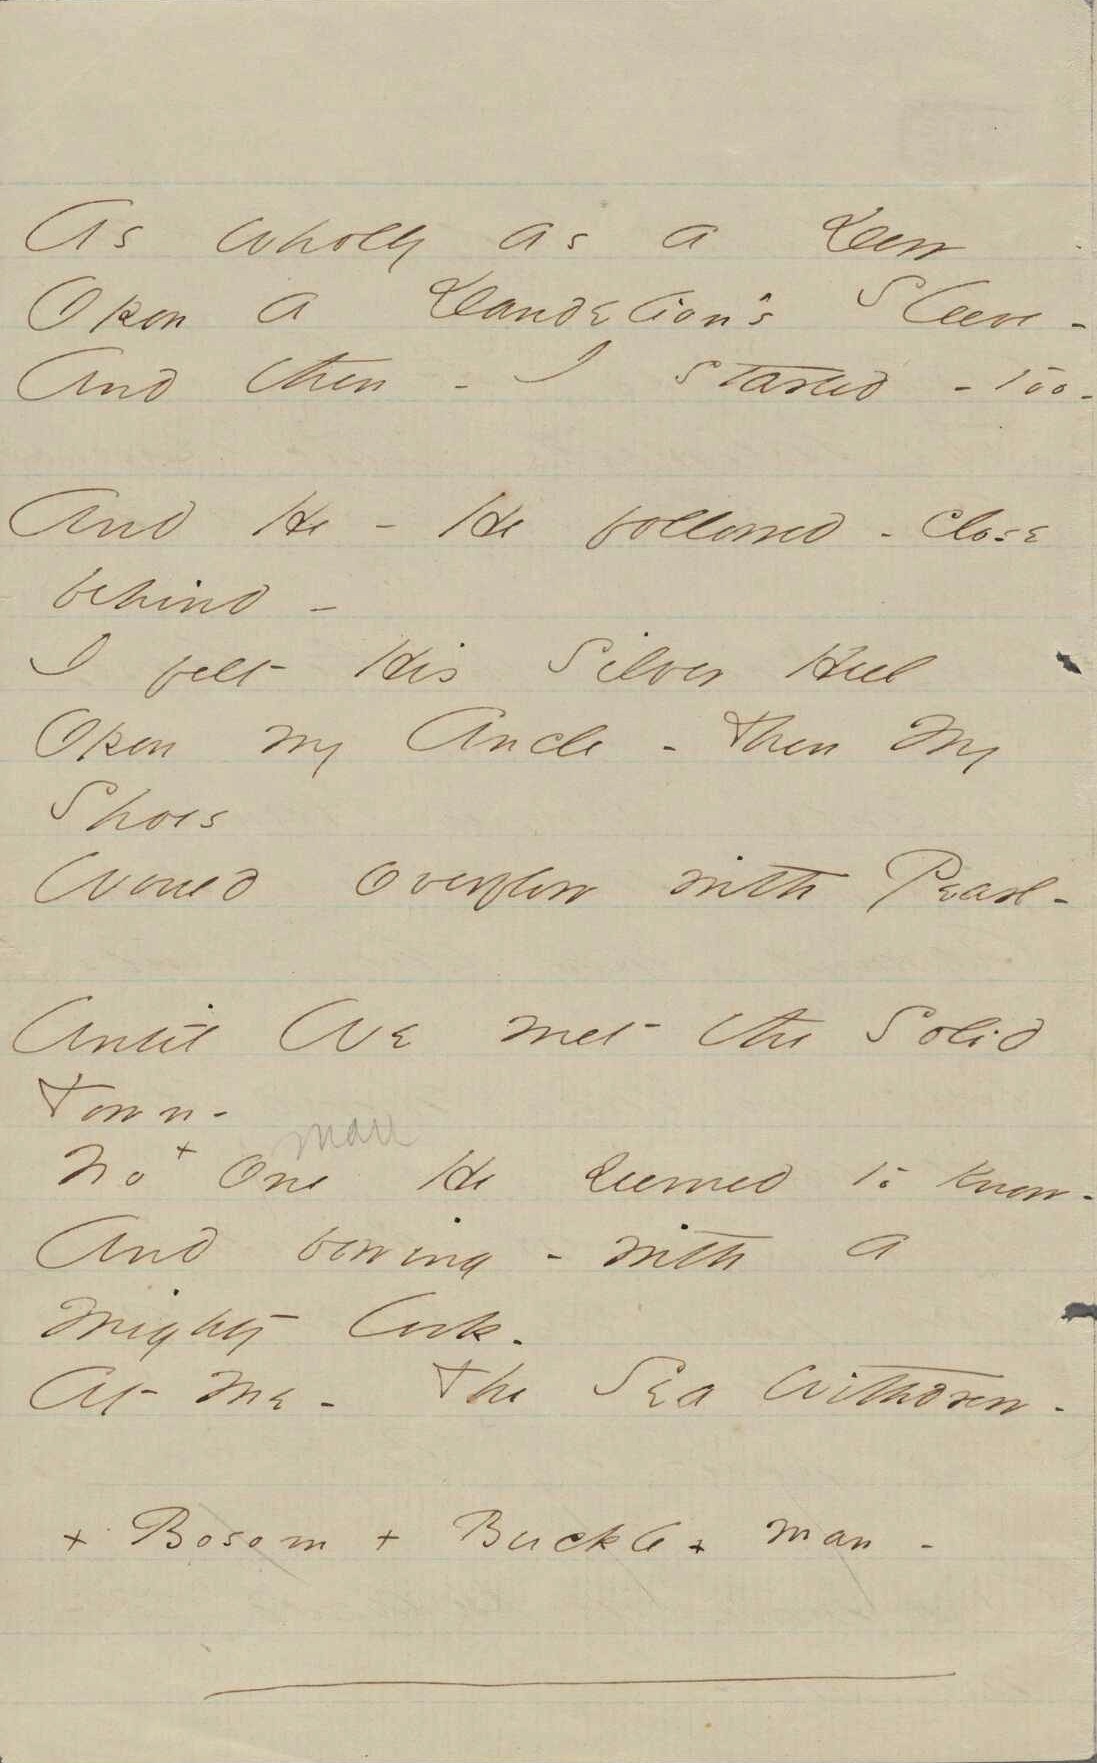 As wholly as a Dew
Opon a Dandelion's Sleeve -
And then - I started - too -
And He - He followed - close
behind -
I felt His Silver Heel
Opon my Ancle - Then My
Shoes
Would overflow with Pearl -
Until We met the Solid
Town -
man
No + One He seemed to know -
And bowing - with a
Mighty look -
At me - The Sea withdrew -
+ Bosom + Buckle + man -